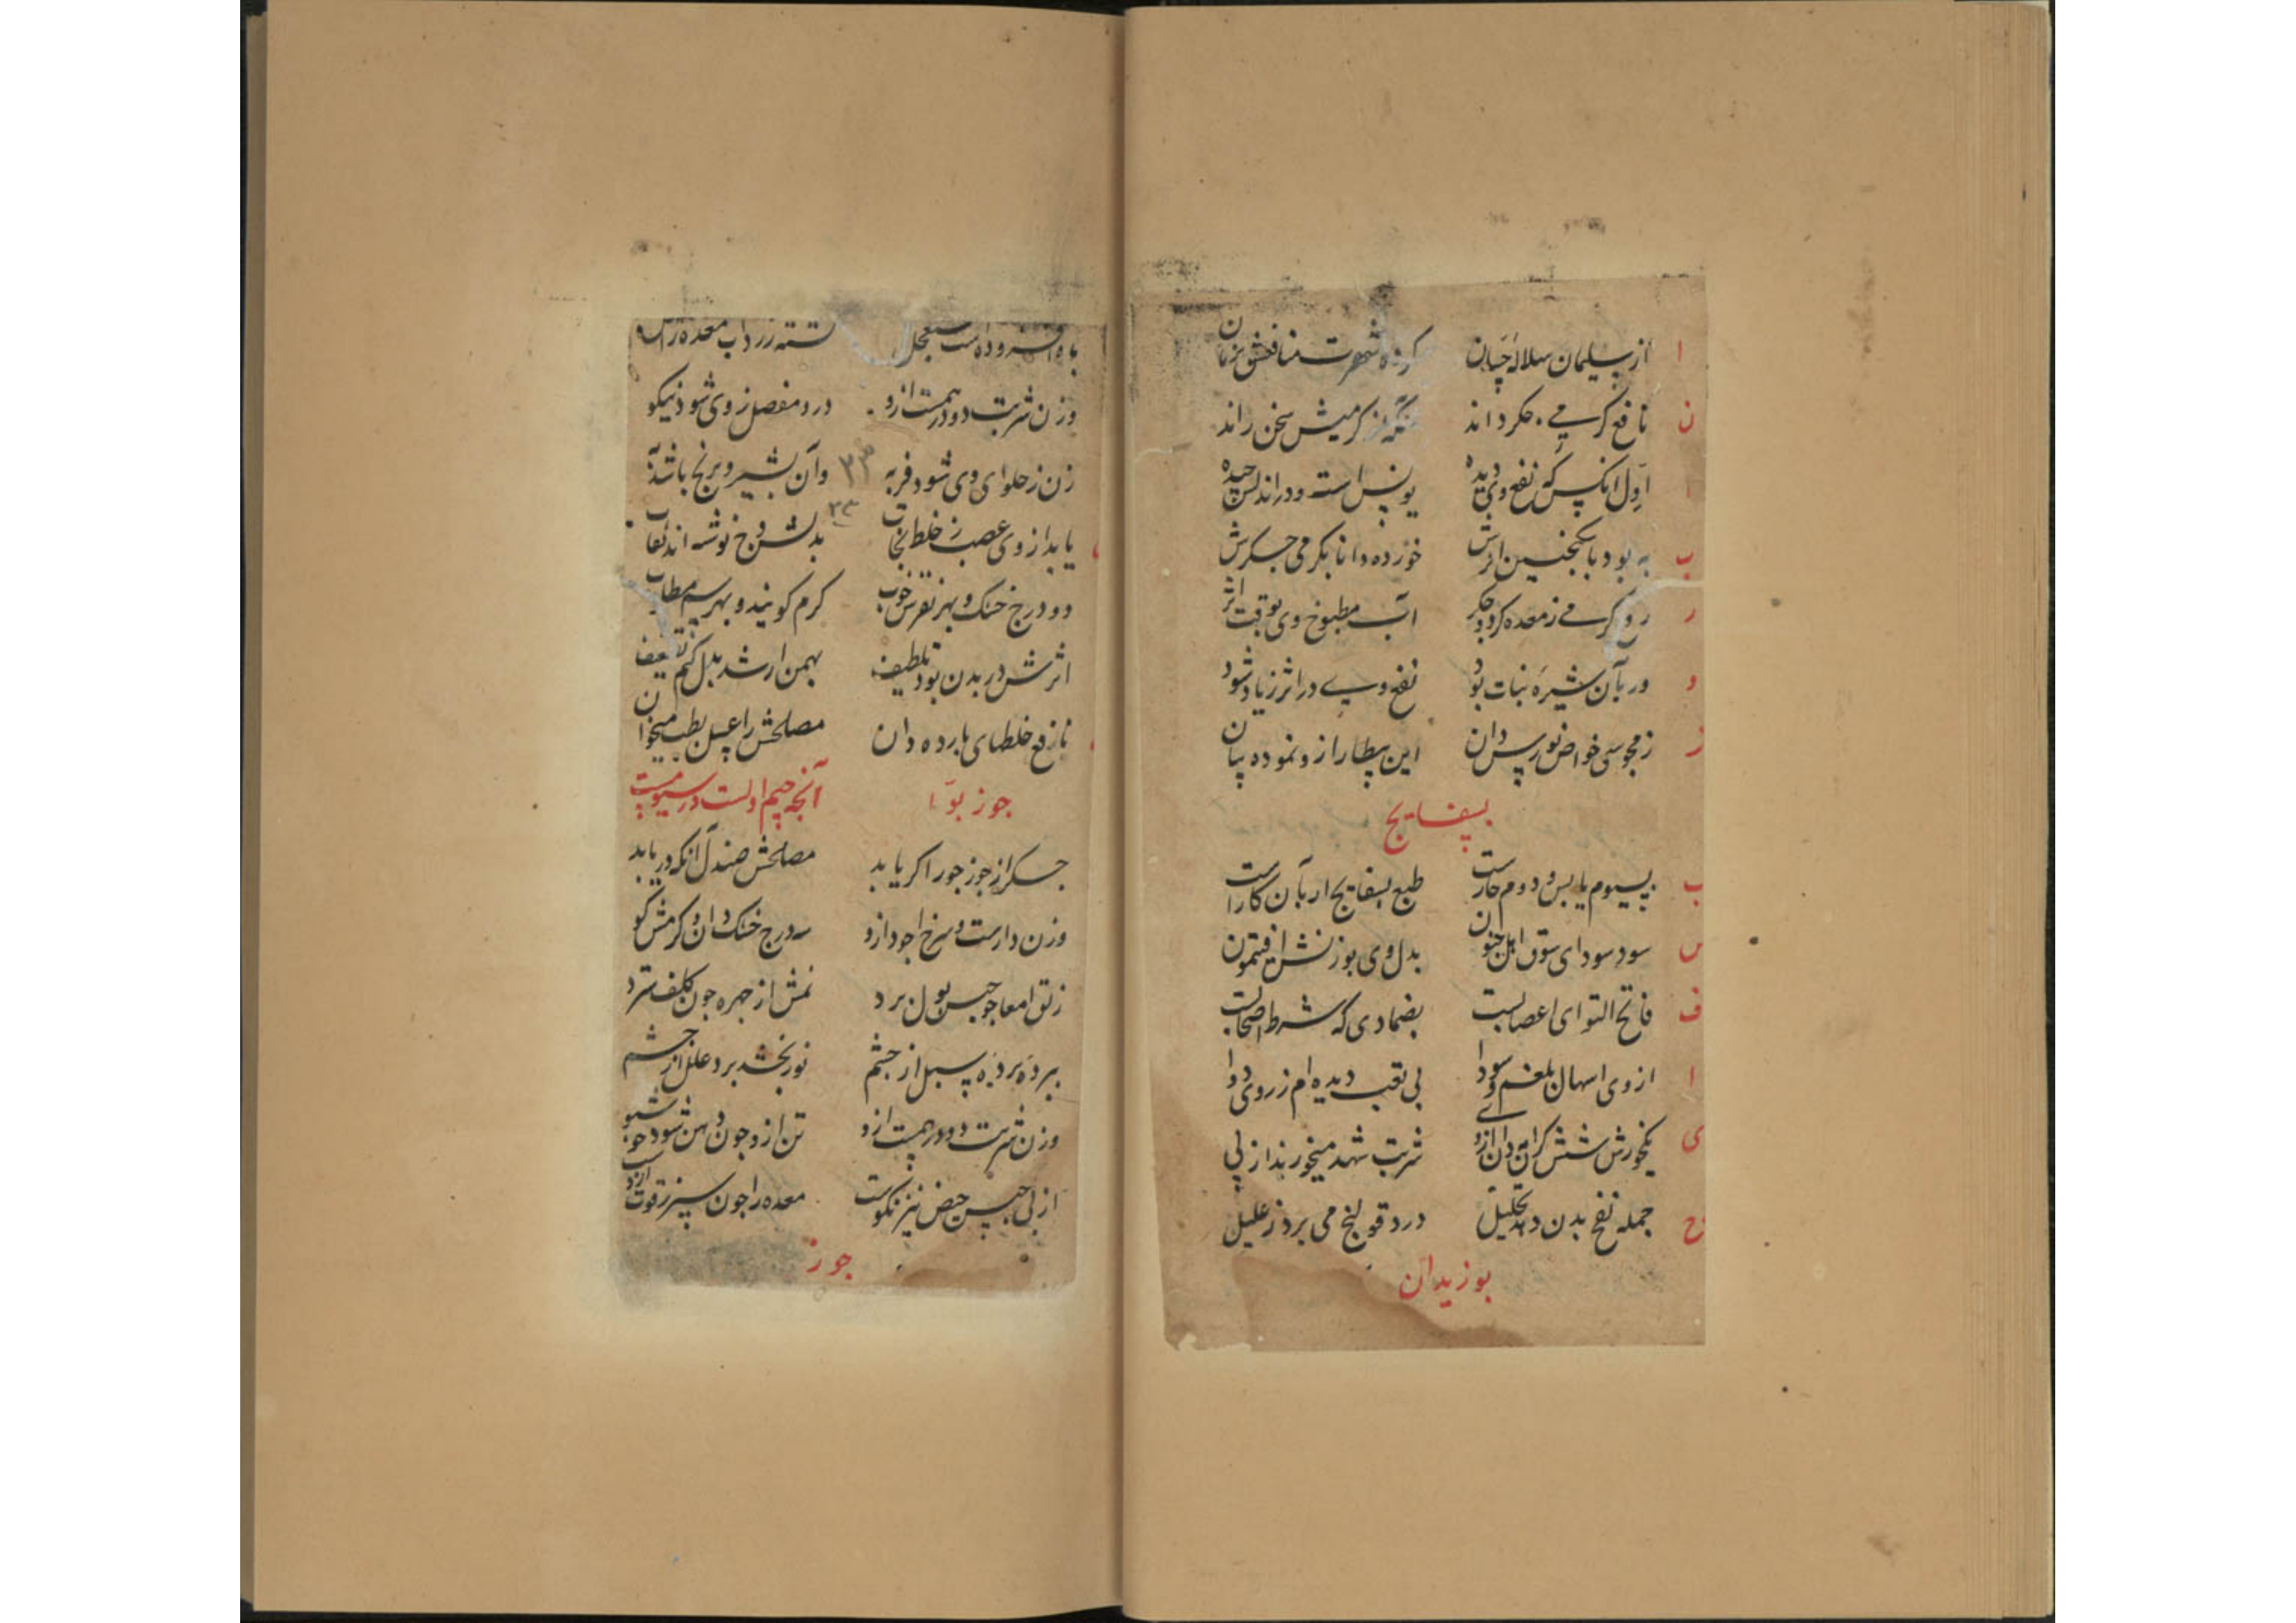 ا از سلیمان سلاله چپان کرده شهرت منافعش بزمان
ن نافع کرمی جکر داند سخن راند
ا اول انکس که نفع وی دیده یونس است ودر اندلس چیده
ب به بود با سکنجبین اثرش خورده دانا بکرمی جکرش
ر رفع کرمی ز معده کرد و جکر آب مطبوخ وی بوقت اثر
و ور بآن شیره نبات بود نفع وی در اثر زیاد شود
ز ز مجوسی خواص نورس دان این بیطار ازو نموده بیان
بسفایج
ب بسیوم یابس و دوم حارست طبع بسفایج ار بآن کارست
س سود سودای سوق اهل جنون بدل وی بوزنش افتیمون
ف فاتح التوای اعصابست بضمادی که شرط اصحابست
ا ازوی اسهال بلغم و سودا بی تعب دیده ام ز روی دوا
ی یکخورش شش کرانی دان ازوی شربت شهد میخورند از پی
ح جمله نفخ بدن دهد تحلیل درد قولنج می برد ز علیل
بوزیدان
باه افزوده است زرداب معده
وزن شربت دو درهمست ازو درد مفصل ز وی شود نیکو
زن ز حلوای وی شود فربه وآن بشیر و برنج باشد به
۳۳
یابد از وی عصب ز خلط نجات بدلش نوشته اند ثقات
۳۳
دو درج خشک و بهر نقرس خوب کرم کویند و بهر سم مطلوب
اثرش در بدن بود تلطیف بهمن ار شد بدل کنم تضعیف
نافع خلطهای بارده دان مصلحش را عسل بطب میخوان
جوز بوا آنچه جیم اولست در سیومیست
جکر از جوز جور اکر یابد مصلحش صندل آنکه دریابد
وزن دارست و سرخ اجود ازو سه درج خشک دان و کرمش کو
زلق امعا چو حبس بول برد نمش از چهره چون کلف سترد
برده برده سبل از چشم نور بخشد برد علل از چشم
وزن شربت دو درهمست ازو تن ازو چون دهن شود خوشبو
از پی حبس حیض نیز نکوست معده را چون سپرز قوت ازوست
جوز